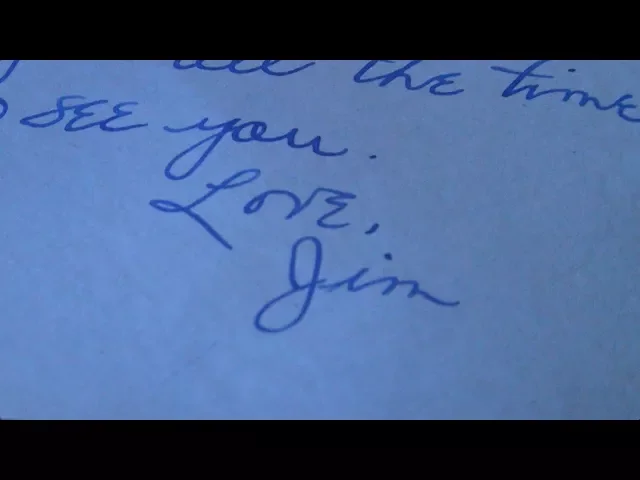 all the time
see you.
Love,
Jim